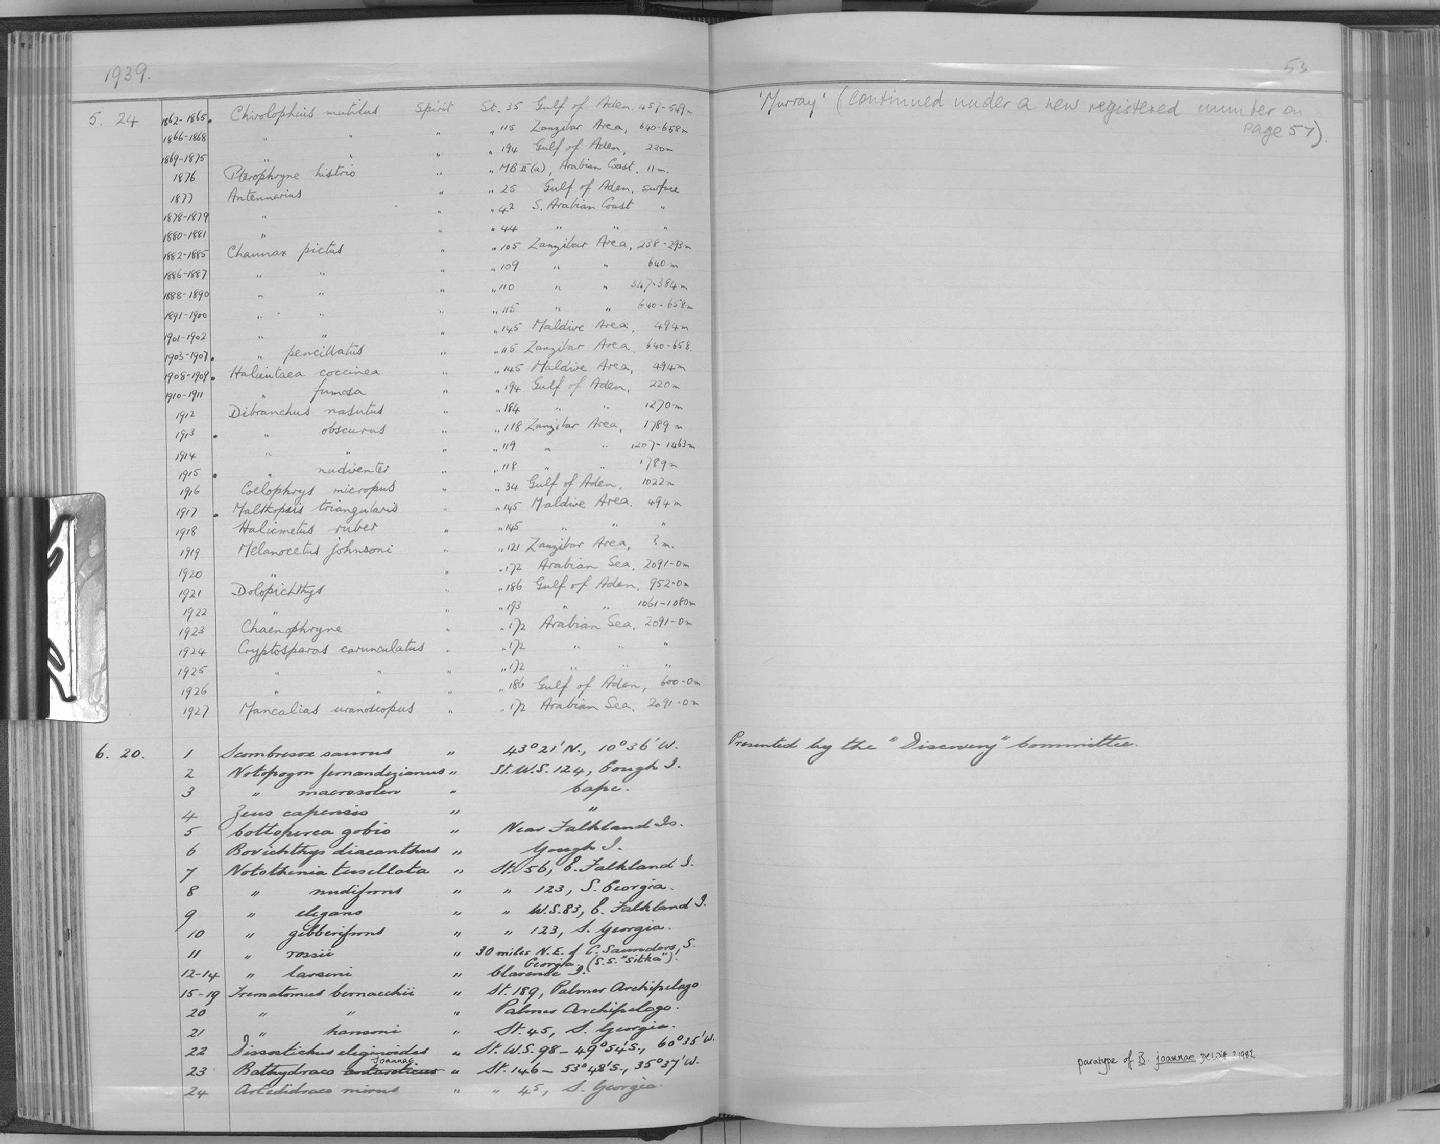 1939.
53
5. 24 1862-1865. Chirolophius mutilus Spirit St. 35 Gulf of Aden. 457-549m 'Murray' (continued under a new registered number on page 57).
1866-1868 " " " " 115 Zanzibar Area, 640-658m
1869-1875 " " " " 194 Gulf of Aden, 220m
1876 Pterophryne histrio " " MB II(a), Arabian Coast. 11m.
1877 Antennarius " " 25 Gulf of Aden, surface
1878-1879 " " " 42 S. Arabian Coast "
1880-1881 " " " 44 " " "
1882-1885 Chaunax pictus " " 105 Zanzibar Area, 238-293m
1886-1887 " " " " 109 " " 640m
1888-1890 " " " " 110 " " 347-384m
1891-1900 " " " " 115 " " 640-658m
1901-1902 " " " " 145 Maldive Area, 494m
1903-1907. " pencillatus " " 115 Zanzibar Area. 640-658.
1908-1909. Halieutaea coccinea " " 145 Maldive Area, 494m
1910-1911 " fumosa " " 194 Gulf of Aden, 220m
1912 Dibranchus nasutus " " 184 " " 1270m
1913 . " obscurus " " 118 Zanzibar Area, 1789m
1914 " " " " 119 " " 1207-1463m
1915 . " nudiventer " " 118 " " 1789m
1916 Coelophrys micropus " " 34 Gulf of Aden. 1022m
1917 . Malthopsis triangularis " " 145 Maldive Area. 494m
1918 Halicmetus ruber " " 145 " " "
1919 Melanocetus johnsoni " " 121 Zanzibar Area, ? m.
1920 " " " 172 Arabian Sea. 2091-0m
1921 Dolopichthys " " 186 Gulf of Aden, 952-0m
1922 " " " 193 " " 1061-1080m
1923 Chaenophryne " " 172 Arabian Sea. 2091-0m
1924 Cryptosparas carunculatus " " 172 " " "
1925 " " " " 172 " " "
1926 " " " " 186 Gulf of Aden, 600-0m
1927 Mancalias uranoscopus " " 172 Arabian Sea. 2091-0m
6. 20. 1 Scombresox saurus " 43°21'N., 10°36'W. Presented by the "Discovery" Committee.
2 Notopogon fernandezianus " St. W.S. 124, Gough I.
3 " macrosolen " Cape.
4 Zeus capensis " "
5 Cottoperca gobio " Near Falkland Is.
6 Bovichthys diacanthus " Gough I.
7 Notothenia tessellata " St. 56, E. Falkland I.
8 " nudifrons " " 123, S. Georgia.
9 " elegans " " W.S. 83, E. Falkland I.
10 " gibberifrons " " 123, S. Georgia.
11 " rossii " 30 miles N.E. of C. Saunders, S. Georgia. (S.S. "Sitka").
12-14 " larseni " Clarence I.
15-19 Trematomus bernacchii " St. 189, Palmer Archipelago
20 " " " Palmer Archipelago.
21 " hansoni " St. 45, S. Georgia.
22 Dissostichus eleginoides " St. W.S. 98 - 49°54'S., 60°35'W.
joannae
23 Bathydraco antarcticus " St. 146 - 53°48'S., 35°37'W. paratype of B. joannae DeWitt
24 Artedidraco mirus " " 45, S. Georgia.